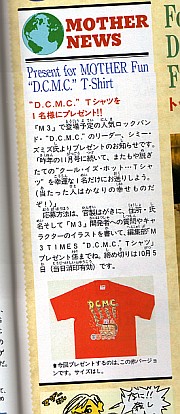 MOTHER
NEWS
Present for MOTHER Fun
"D.C.M.C." T-Shirt
"D.C.M.C." Tシャツを
1名様にプレゼント!!
「M3」で登場予定の人気ロックバン
ド・"D.C.M.C."のリーダー、シミー・
ズミズ氏よりプレゼントのお知らせです。
「昨年の11月号に続いて、またもや脱ぎ
たての"クール・イズ・ホット…Tシャ
ツ"を幸運な1名だけにお送りしよう。
(当たった人はかなりの幸せものだ
ぞ!)」
応募方法は、官製はがきに、住所・氏
名そして「M3」開発者への質問やキャ
ラクターのイラストを書いて、編集部「M
3 TIMES "D.C.M.C." Tシャツ」
プレゼント係まで。締め切りは10月5
日(当日消印有効)です。
DCMC
●今回プレゼントするのは、この赤バージョ
ンです。サイズはL。